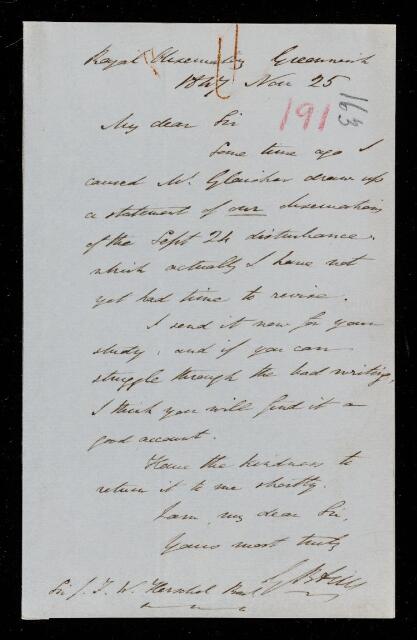 Royal Observatory Greenwich
1847 Nov 25
191
163
My dear Sir
Some time ago I
caused Mr. Glaisher draw up
a statement of our observations
of the Sept 24 disturbance.
which actually I have not
yet had time to revise.
I send it now for your
study, and if you can
struggle through the bad writing,
I think you will find it a
good account.
Have the kindness to
return it to me shortly.
I am, my dear Sir,
Yours most truly
G B Airy
Sir J. F. W. Herschel Bart